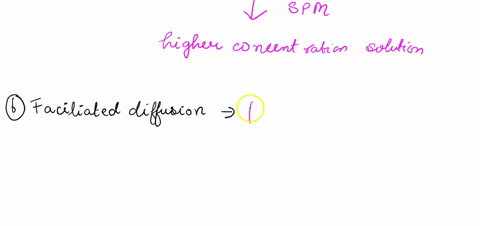 ↓ SPM
higher concentration solution
⑥ Faciliated diffusion →